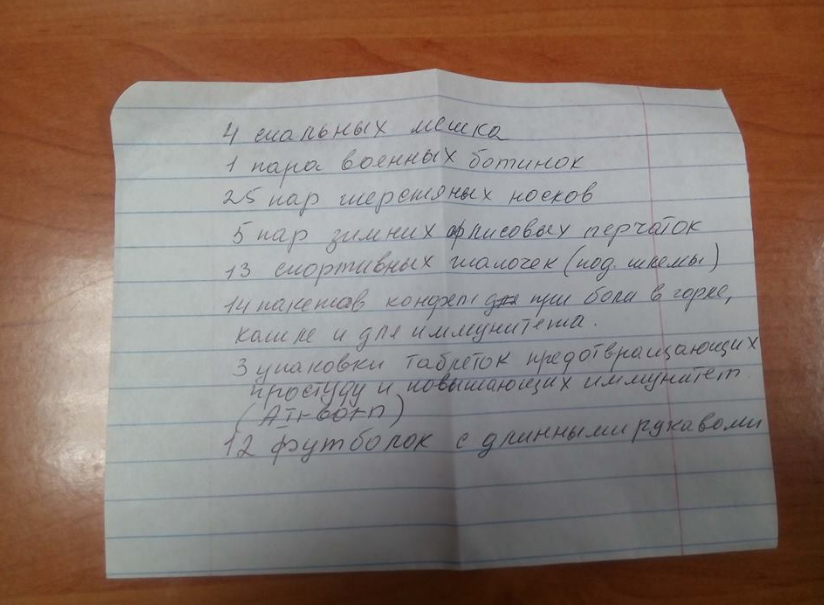 4 спальных мешка
1 пара военных ботинок
25 пар шерстяных носков
5 пар зимних флисовых перчаток
13 спортивных шапочек (под. шлемы)
14 пакетов конфет при боли в горле,
кашле и для иммунитета.
3 упаковки таблеток предотвращающих
простуду и повышающих иммунитет.
12 футболок с длинными рукавами